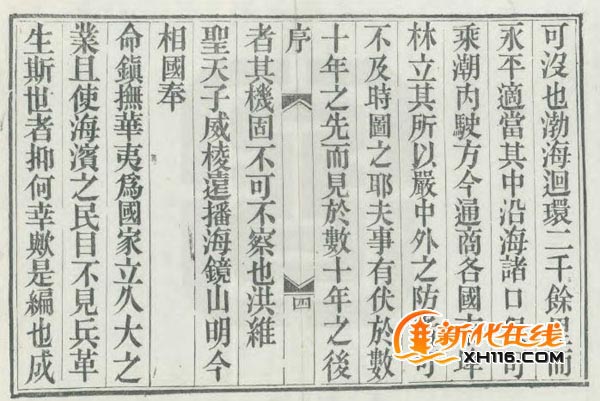 可沒也渤海迴環二千餘里而
永平適當其中沿海諸口
乘潮內駛方今通商各國
林立其所以嚴中外之防
不及時圖之耶夫事有伏於數
十年之先而見於數十年之後
序
四
者其機固不可不察也洪維
聖天子威棱遠播海鏡山明今
相國奉
命鎮撫華夷爲國家立久大之
業且使海濱之民目不見兵革
生斯世者抑何幸歟是編也成
新化在线
XH116.COM